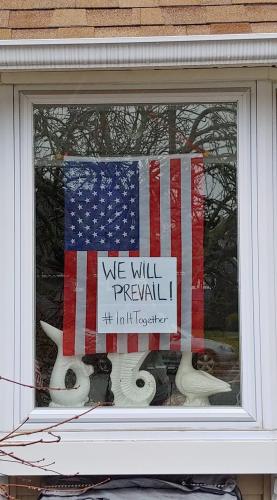 WE WILL
PREVAIL!
#InItTogether